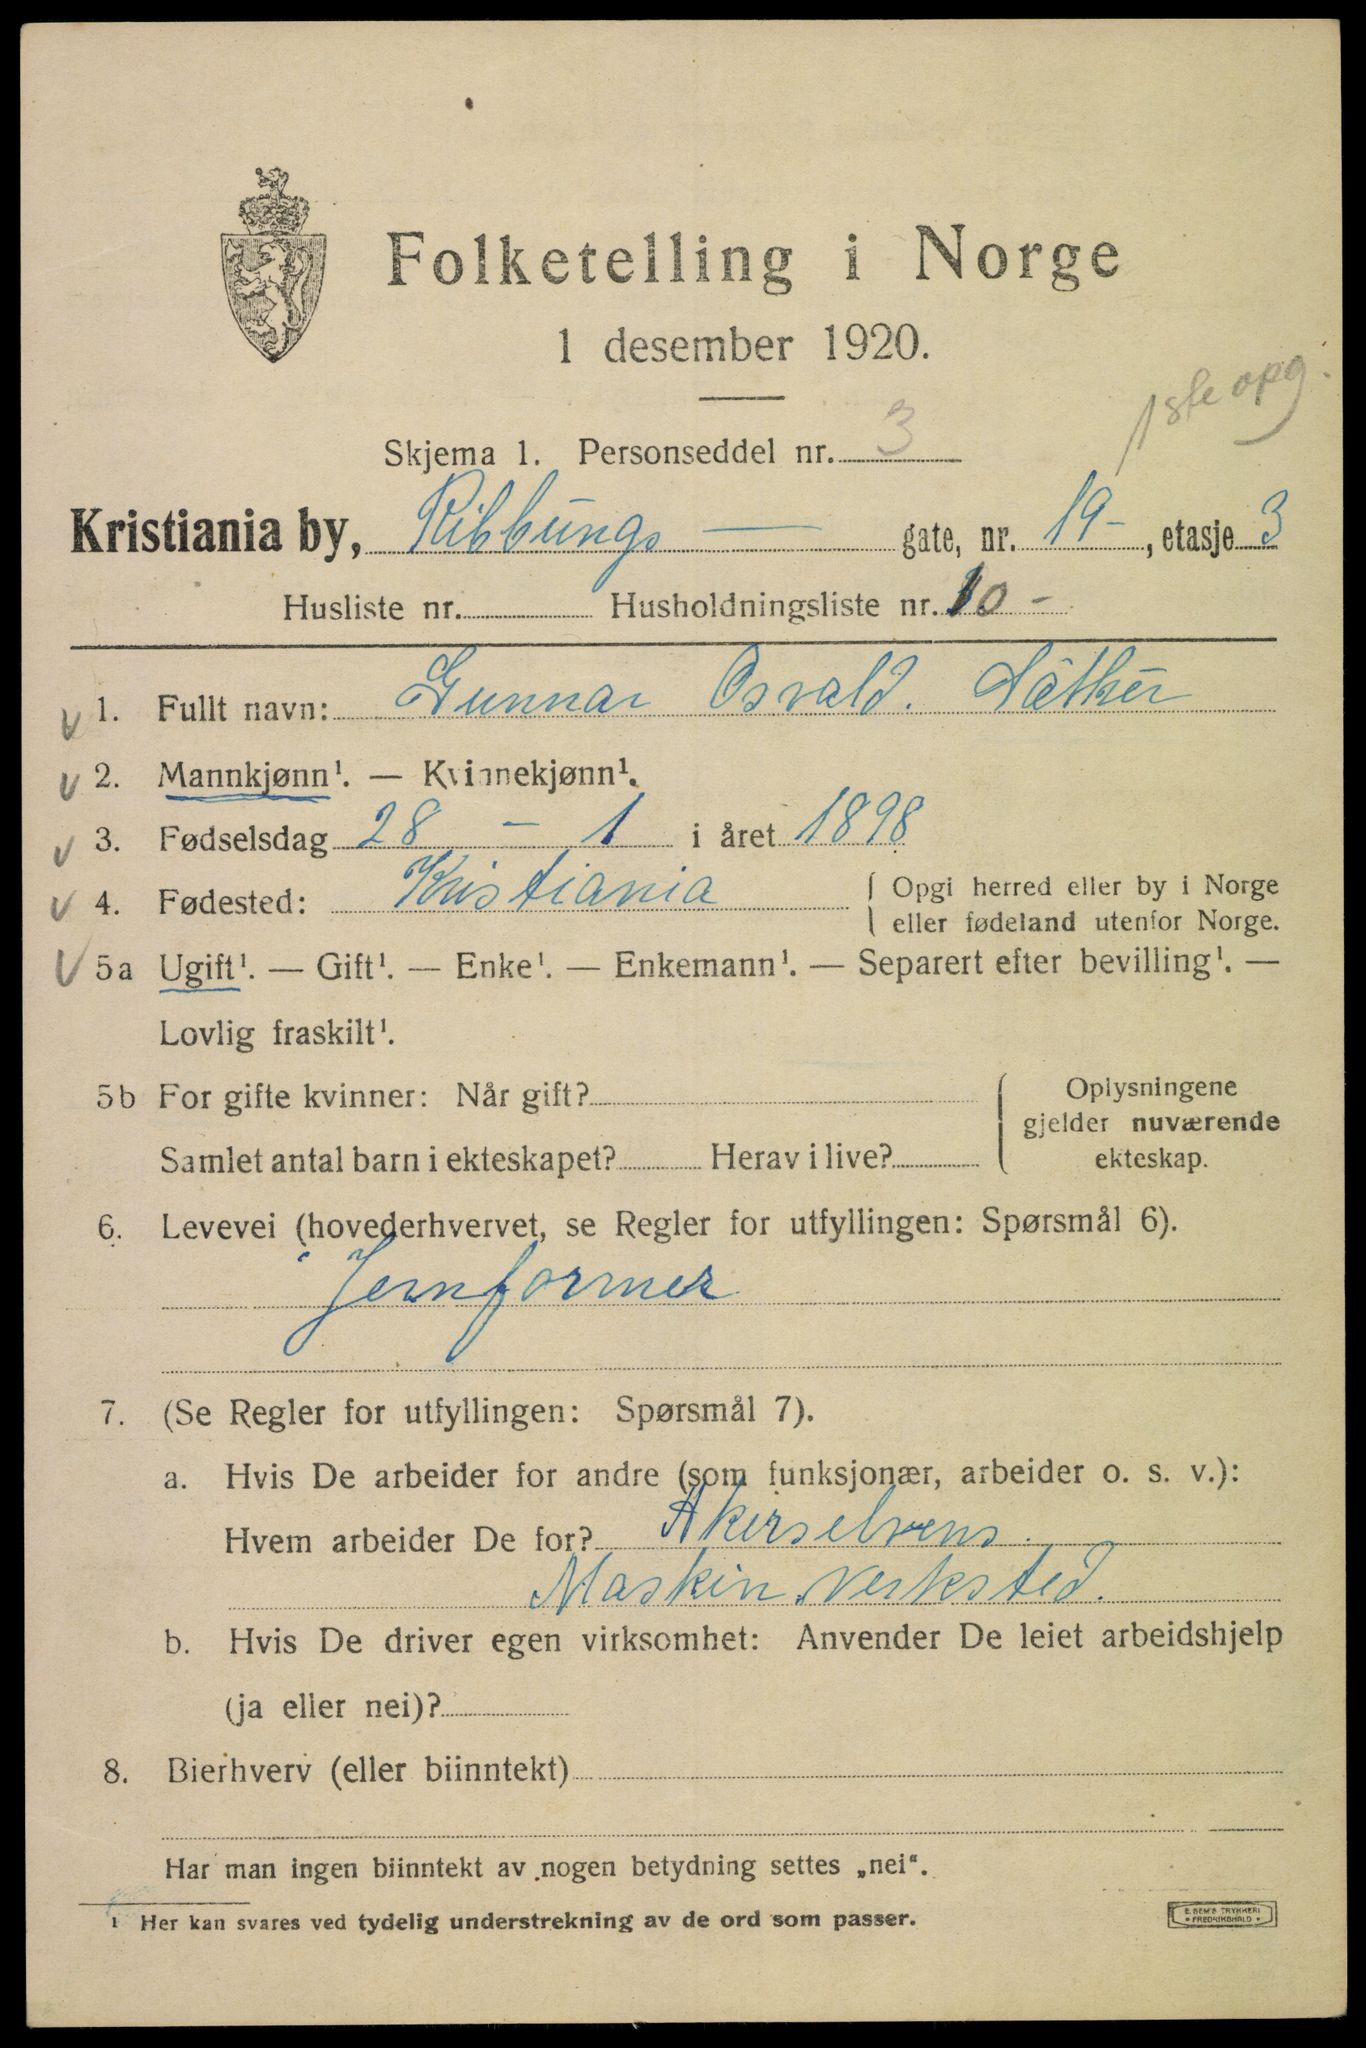 Folketelling i Norge
1 desember 1920.
1ste opg.
Skjema 1. Personseddel nr. 3
Kristiania by, Ribbungs — gate, nr. 19-, etasje 3
Husliste nr. Husholdningsliste nr. 10-
1. Fullt navn: Gunnar Osvald. Säther
2. Mannkjønn¹. — Kvinnekjønn¹.
3. Fødselsdag 28 - 1 i året 1898
4. Fødested: Kristiania { Opgi herred eller by i Norge
eller fødeland utenfor Norge.
5a Ugift¹. — Gift¹. — Enke¹. — Enkemann¹. — Separert efter bevilling¹. —
Lovlig fraskilt¹.
5b For gifte kvinner: Når gift? { Oplysningene
gjelder nuværende
Samlet antal barn i ekteskapet? Herav i live? ekteskap.
6. Levevei (hovederhvervet, se Regler for utfyllingen: Spørsmål 6).
Jernformer
7. (Se Regler for utfyllingen: Spørsmål 7).
a. Hvis De arbeider for andre (som funksjonær, arbeider o. s. v.):
Hvem arbeider De for? Akerselvens
Maskin. Verksted.
b. Hvis De driver egen virksomhet: Anvender De leiet arbeidshjelp
(ja eller nei)?
8. Bierhverv (eller biinntekt)
Har man ingen biinntekt av nogen betydning settes „nei“.
¹ Her kan svares ved tydelig understrekning av de ord som passer.
E. SEM'S TRYKKERI
• FREDRIKSHALD •